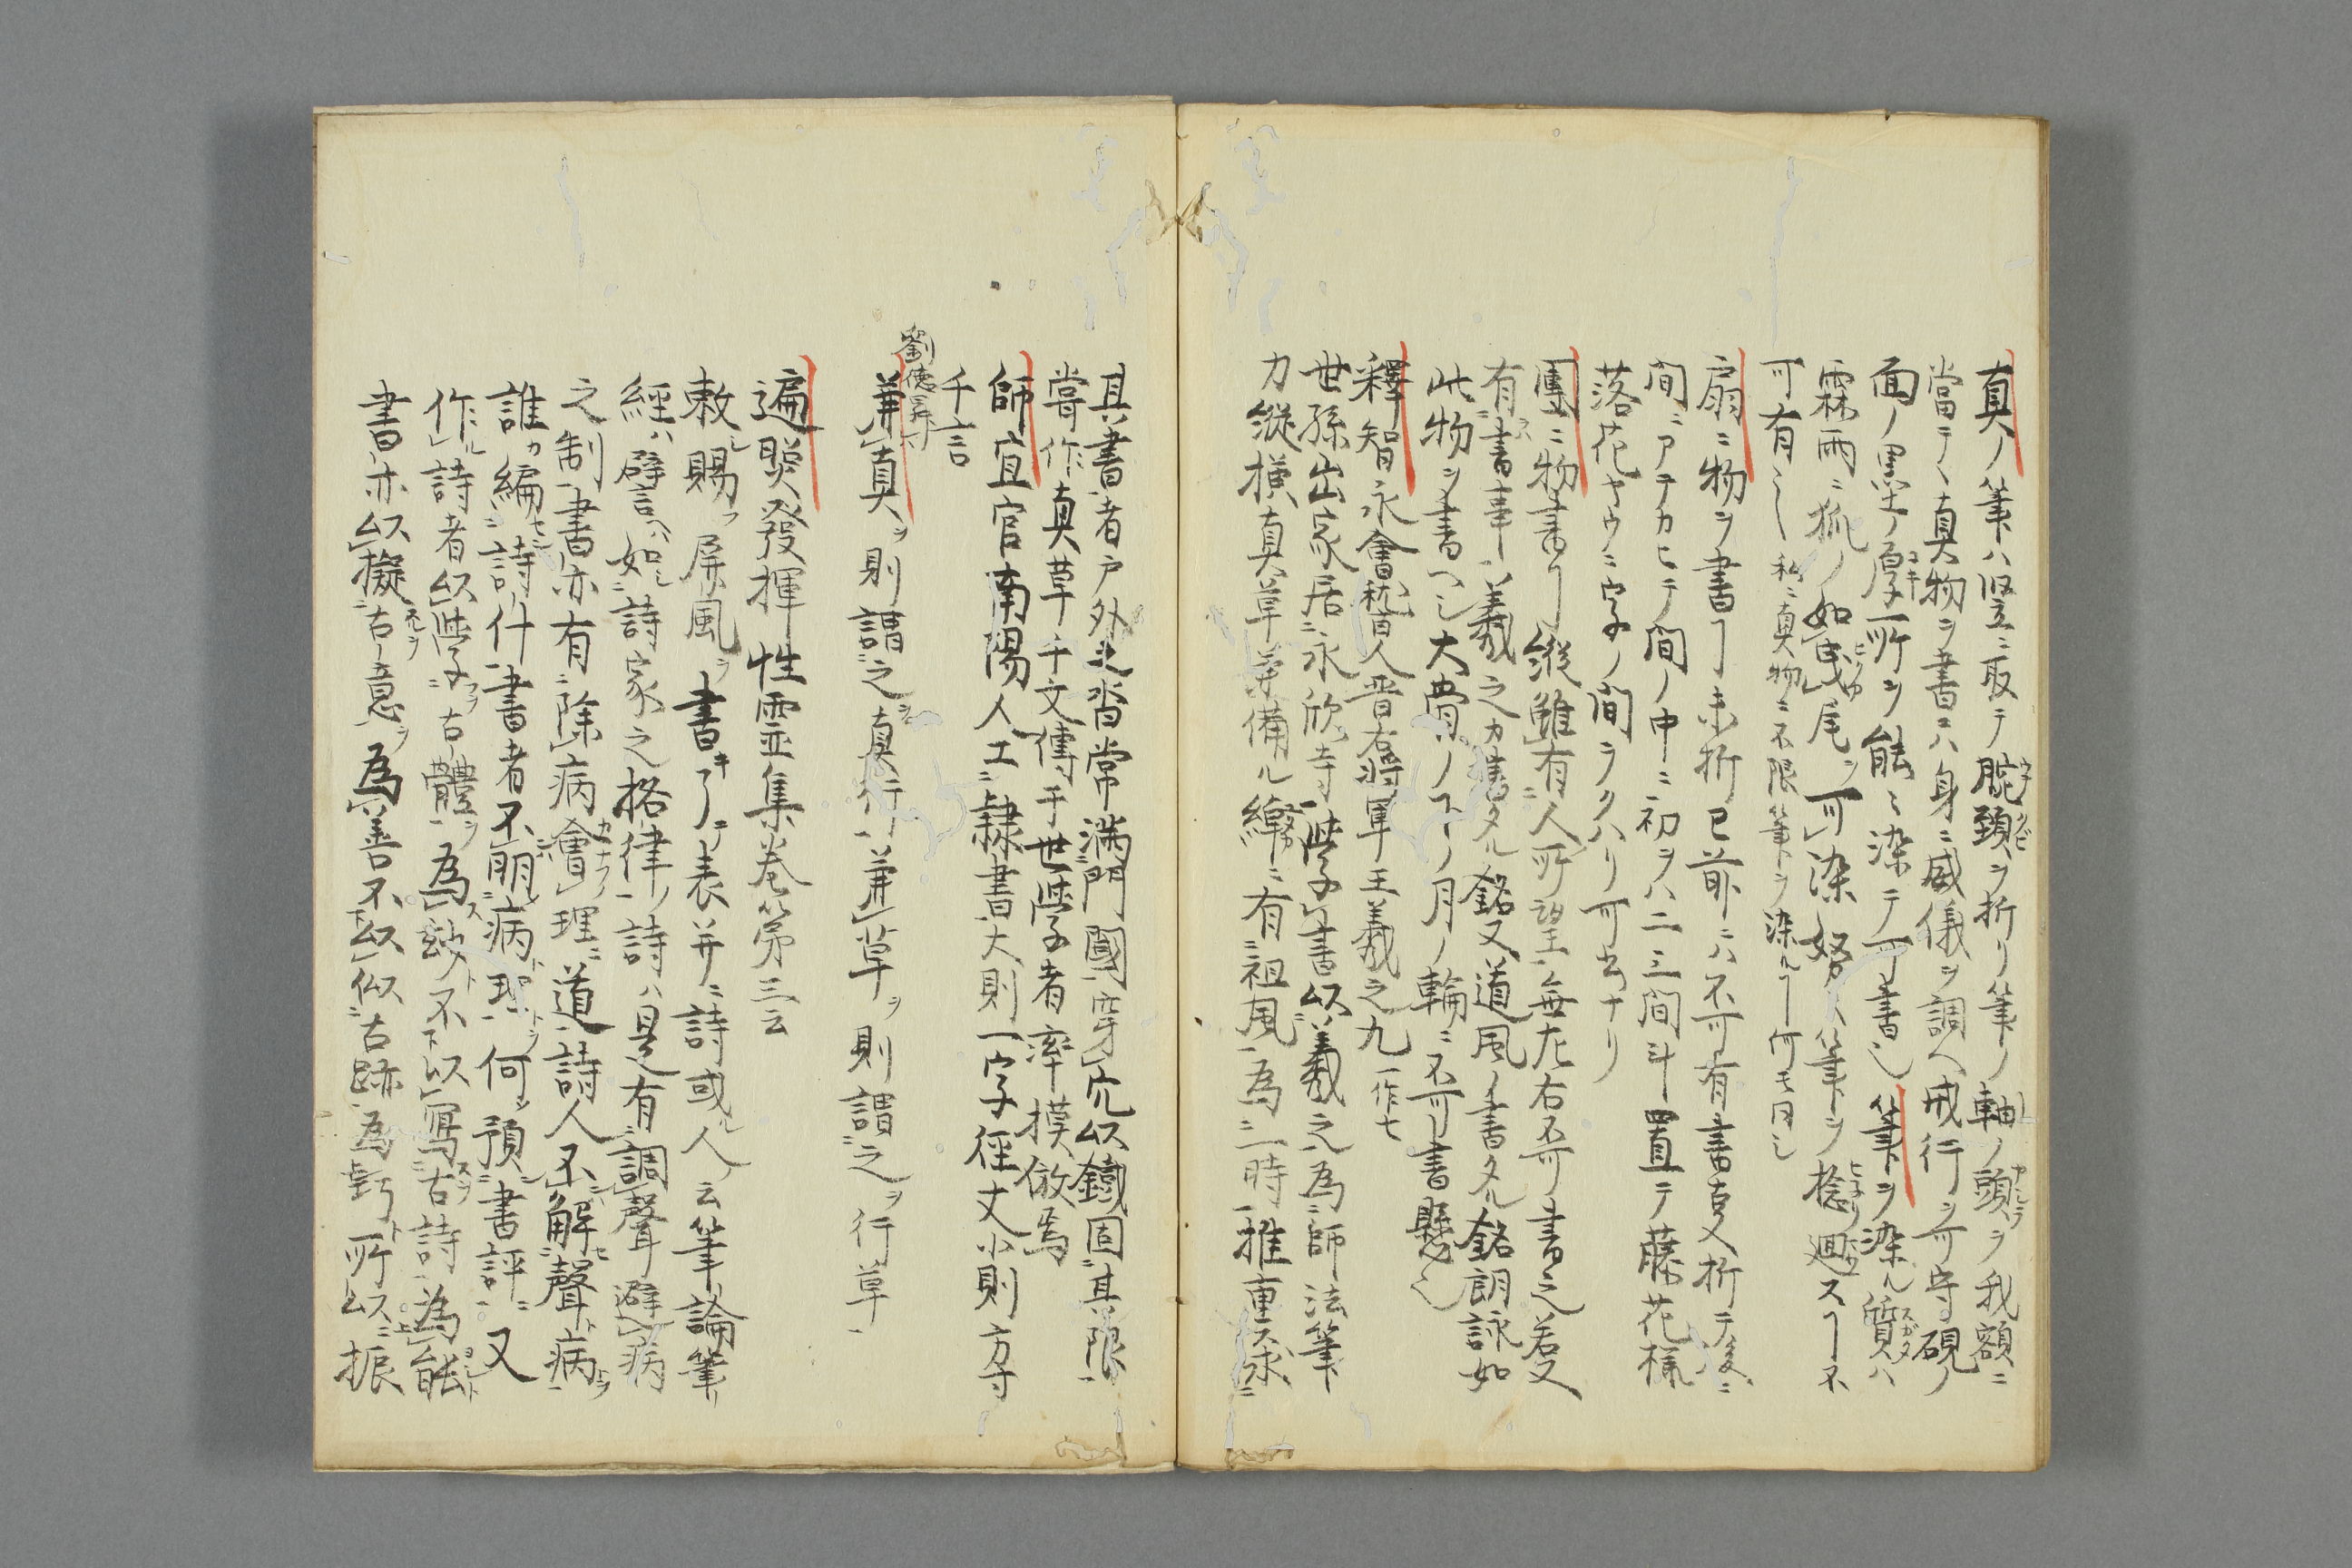 真ノ筆ハ竪ニ取テ腕頸ヲ折リ筆ノ軸ノ頭ヲ我額ニ
當テヽ真物ヲ書ニハ身ニ威儀ヲ調ヘ戒行ヲ可守硯ノ
面ノ墨ノ厚所ヲ能々染テ可書之筆ヲ染ル質ハ
霖雨ニ狐ノ如曳尾ヲ可染努々筆ヲ捻廻スヿ不
可有之 私ニ真物ニ不限筆ヲ染ルヿ何モ同之
扇ニ物ヲ書ヿ未折已前ニハ不可有書更折テ後ニ
間ニアテカヒテ間ノ中ニ初ヲハ二三間斗置テ藤花様
落花ヤウニ字ノ間ヲクハリ可書ナリ
團ニ物書ヿ縦雖有人所望無左右不可書之若又
有書事義之カ書タル銘又道風ノ書タル銘朗詠如
此物ヲ書ヘシ大骨ノ下ノ月ノ輪ニ不可書懸之
釋智永會稽人晋右将軍王義之九一作七
世孫出家居永欣寺學書以義之為師法筆
力縦横真草兼備ル綽有祖風為一時推重永
其書者戸外之沓常満門閫穿穴以鐵固其限
嘗作真草千文傳于世學者率摸倣焉
師宜官南陽人工隷書大則一字径丈小則方寸
千言
劉徳昇
兼真ヲ則謂之真行兼草ヲ則謂之ヲ行草
遍照發揮性霊集巻第三云
敕賜屏風ヲ書キ了テ表并ニ詩或人ノ云筆論筆
經ハ譬言ハ如シ詩家之格律ノ詩ハ是有調聲避病
之制書亦有除病會理道詩人不解聲病
誰カ編詩什書者不明病理何預書評又
作詩者以學古體為妙不以寫古詩為能
書亦以擬古意為善不以似古跡為巧所以振